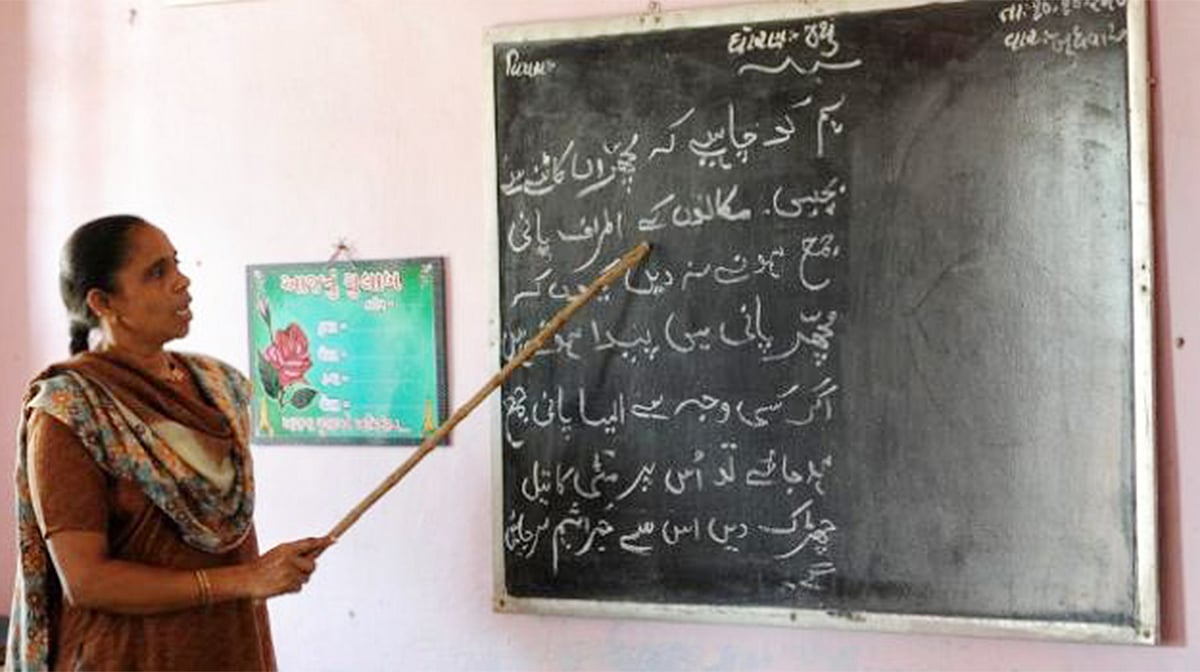 વિષય:-
ધોરણ:- ૪થું
તા:
વાર:- બુધવાર
ہم کو چاہیے کہ مچھّروں کاٹنے سے
بچیں۔ مکانوں کے اطراف پانی
جمع ہونے نہ دیں کیوں کہ
مچھّر پانی میں پیدا ہوتے ہیں
اگر کسی وجہ سے ایسا پانی جمع
ہو جائے تو اُس پر مٹّی کا تیل
چھڑک دیں اس سے جراثیم مر جائیں
گے۔
આજનું ગુલાબ